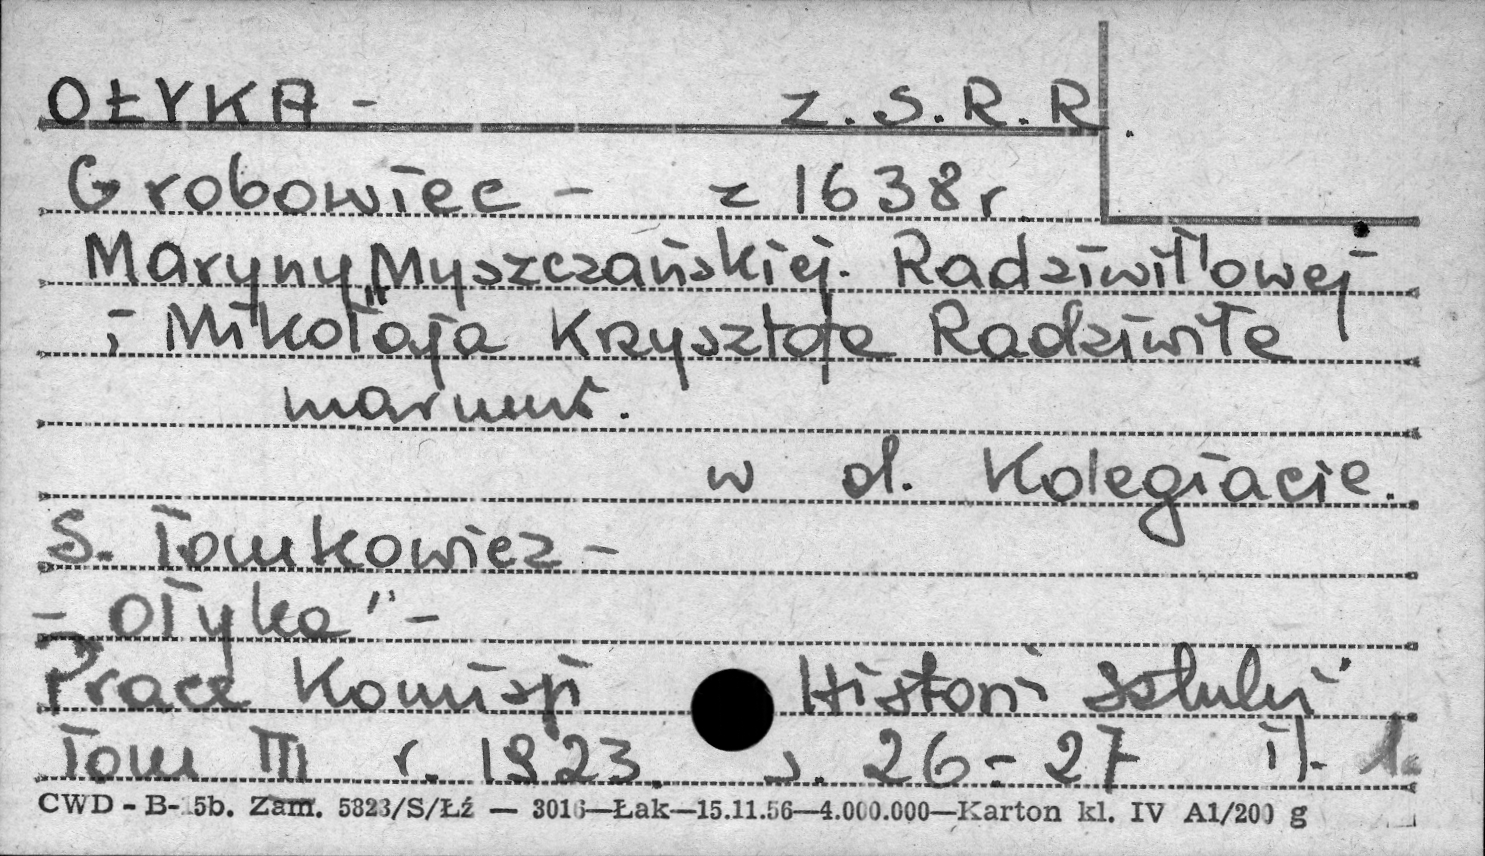 OŁYKA - Z.S.R.R.
Grobowiec - z 1638 r.
Maryny Myszczańskiej - Radziwiłłowej
i Mikołaja Krzysztofa Radziwiłła
marmur.
w d. Kolegiacie.
S. Tomkowicz -
- Ołyka" -
Prace Komisji Historii Sztuki"
Tom III r. 1923. s. 26-27 il. 1.
CWD - B- 5b. Zam. 5823/S/Łź — 3016—Łak—15.11.56—4.000.000—Karton kl. IV A1/200 g